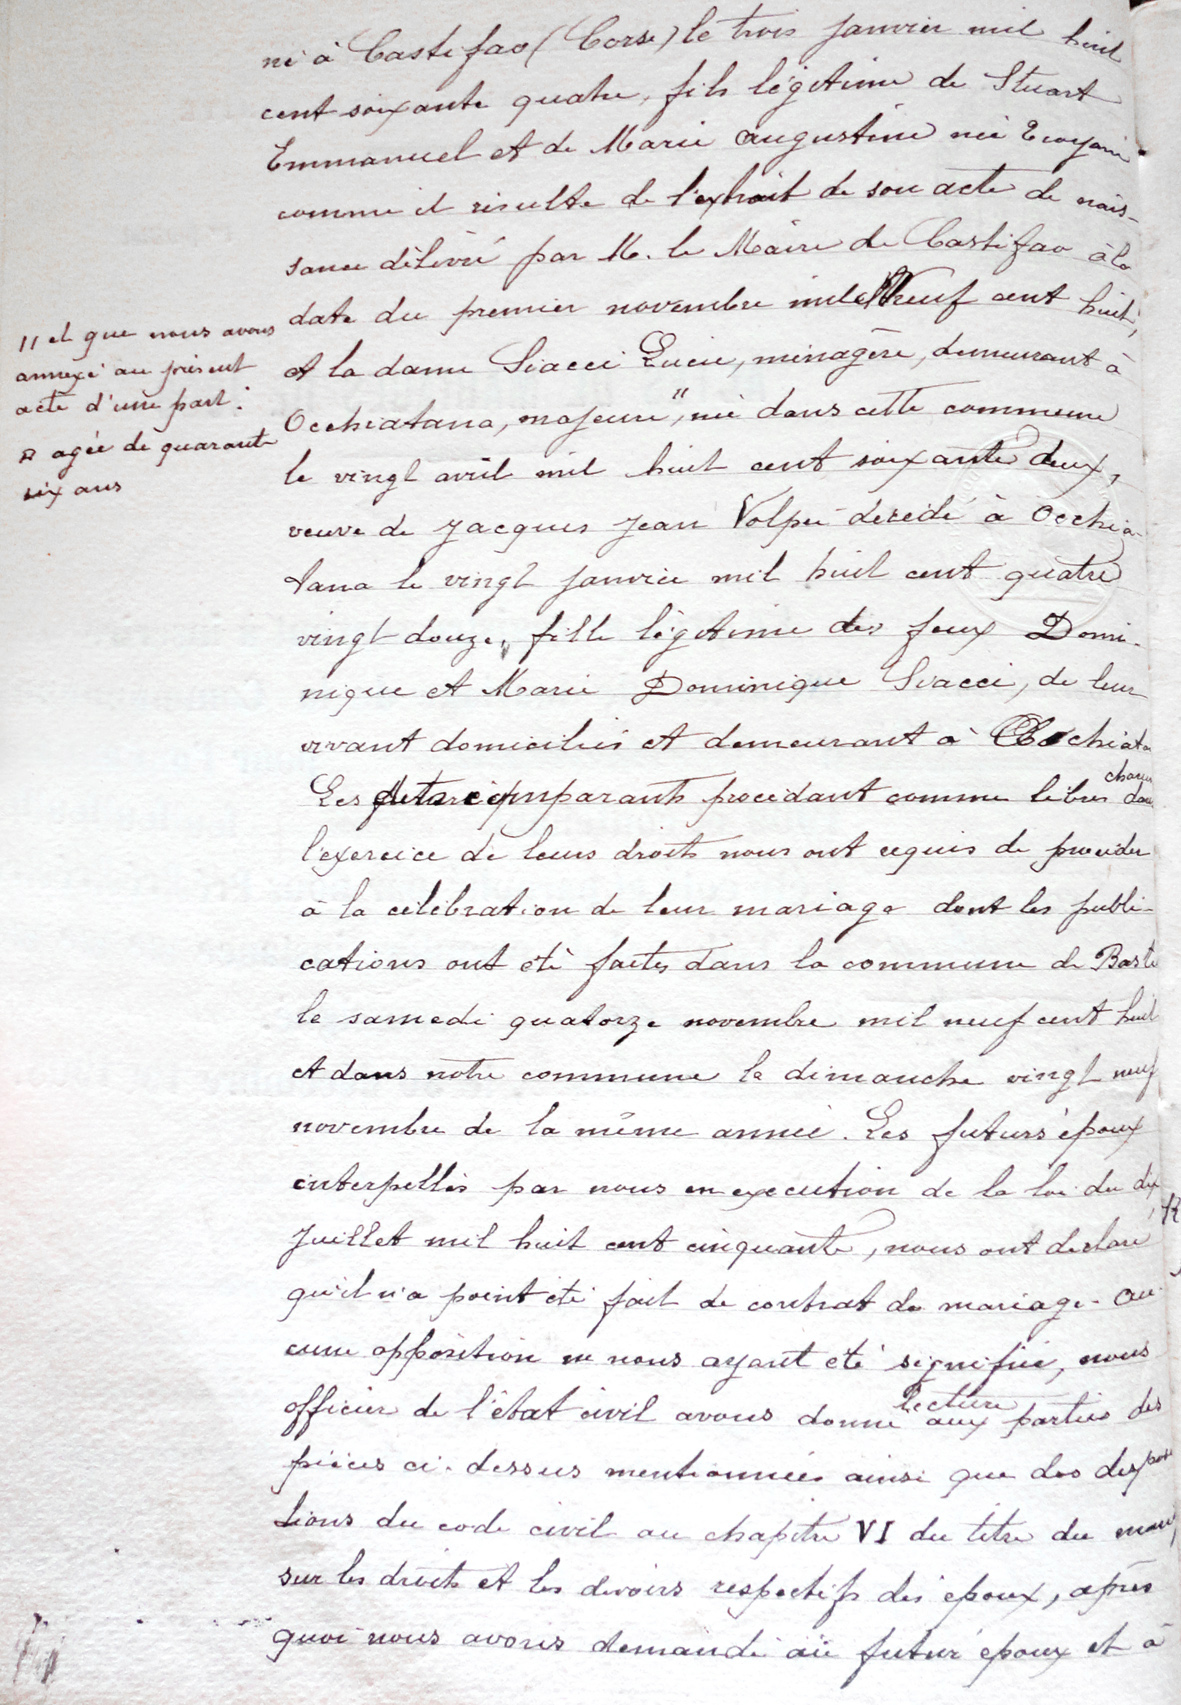 né à Castifao (Corse) le trois janvier mil huit
cent soixante quatre, fils légitime de Stuart
Emmanuel et de Marie Augustine née
comme il résulte de l'extrait de son acte de nais-
sance délivré par M. le Maire de Castifao à la
date du premier novembre mil neuf cent huit,
// et que nous avons
annexé au présent
acte d'une part.
¤ agée de quarante
six ans
et la dame Siacci Lucie, ménagère, demeurant à
Occhiatana, majeure", née dans cette commune
le vingt avril mil huit cent soixante deux,
veuve de Jacques Jean Volpei décédé à Occhia-
tana le vingt janvier mil huit cent quatre
vingt douze, fille légitime des feux Domi-
nique et Marie Dominique Siacci, de leur
vivant domiciliés et demeurant à Occhiata
Les comparants procédant comme libres chacun dans
l'exercice de leurs droits nous ont requis de procéder
à la célébration de leur mariage dont les publi-
cations ont été faites dans la commune de Basti
le samedi quatorze novembre mil neuf cent huit
et dans notre commune le dimanche vingt neuf
novembre de la même année. Les futurs époux
interpellés par nous en execution de la loi du dix
Juillet mil huit cent cinquante, nous ont declaré
qu'il n'a point été fait de contrat de mariage. Au-
cune opposition ne nous ayant été signifiée, nous
officier de l'état civil avons donné lecture aux parties des
pièces ci-dessus mentionnées ainsi que des disposi
tions du code civil au chapitre VI du titre du
sur les droits et les devoirs respectifs des époux, après
quoi nous avons demandé au futur époux et à